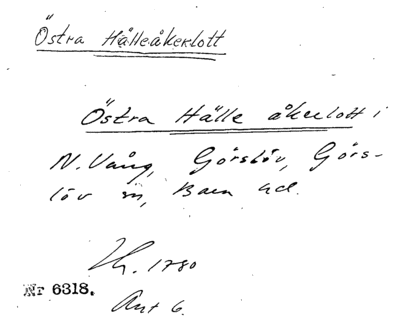 Östra Hälleåkerlott
Östra Hälle åkerlott i
N. Vång, Görslöv, Görs-
löv sn, Bara hd.
Lh. 1780
Nr 6318.
Akt 6.